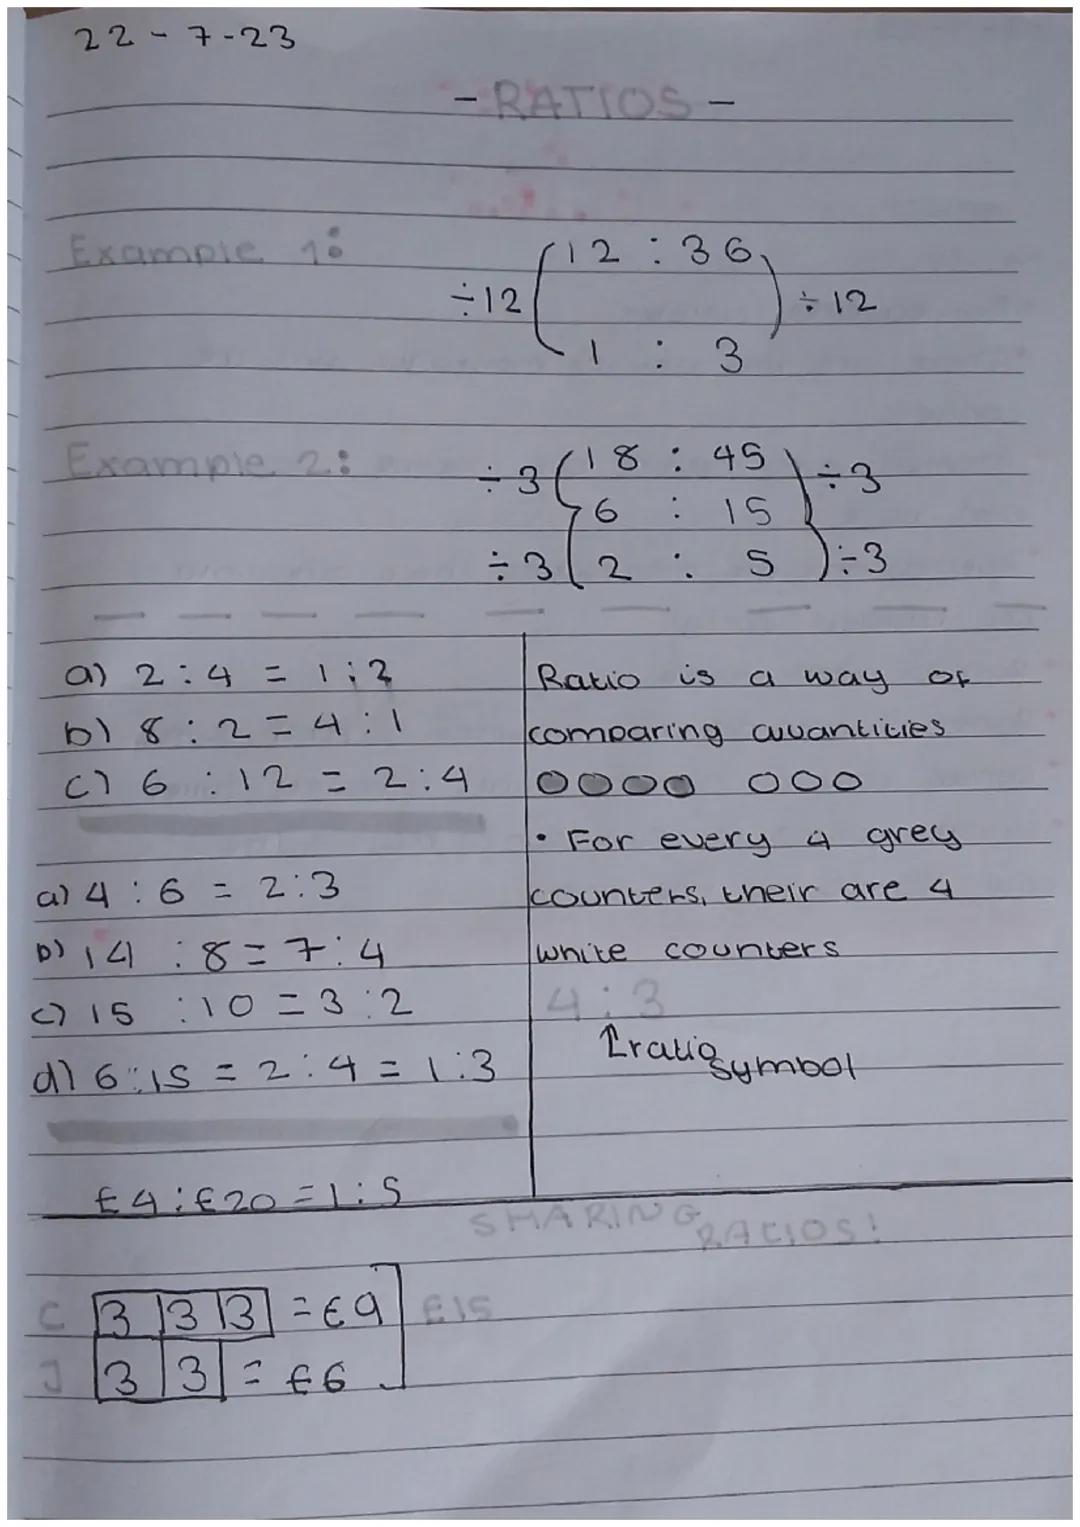 22-7-23
- RATIOS -
Example 1:
12 : 36
÷12
÷12
1 : 3
Example 2:
÷3 18 : 45 ÷3
6 : 15
÷3 2 : 5 ÷3
a) 2 : 4 = 1 : 2
b) 8 : 2 = 4 : 1
c) 6 : 12 = 2 : 4
a) 4 : 6 = 2 : 3
b) 14 : 8 = 7 : 4
c) 15 : 10 = 3 : 2
d) 6 : 15 = 2 : 4 = 1 : 3
£4 : £20 = 1 : 5
Ratio is a way of
comparing quantities
• For every 4 grey
counters, their are 4
white counters
4 : 3
↑ratio
symbol
SHARING
RATIOS!
C 3 3 3 = £9 £15
J 3 3 = £6